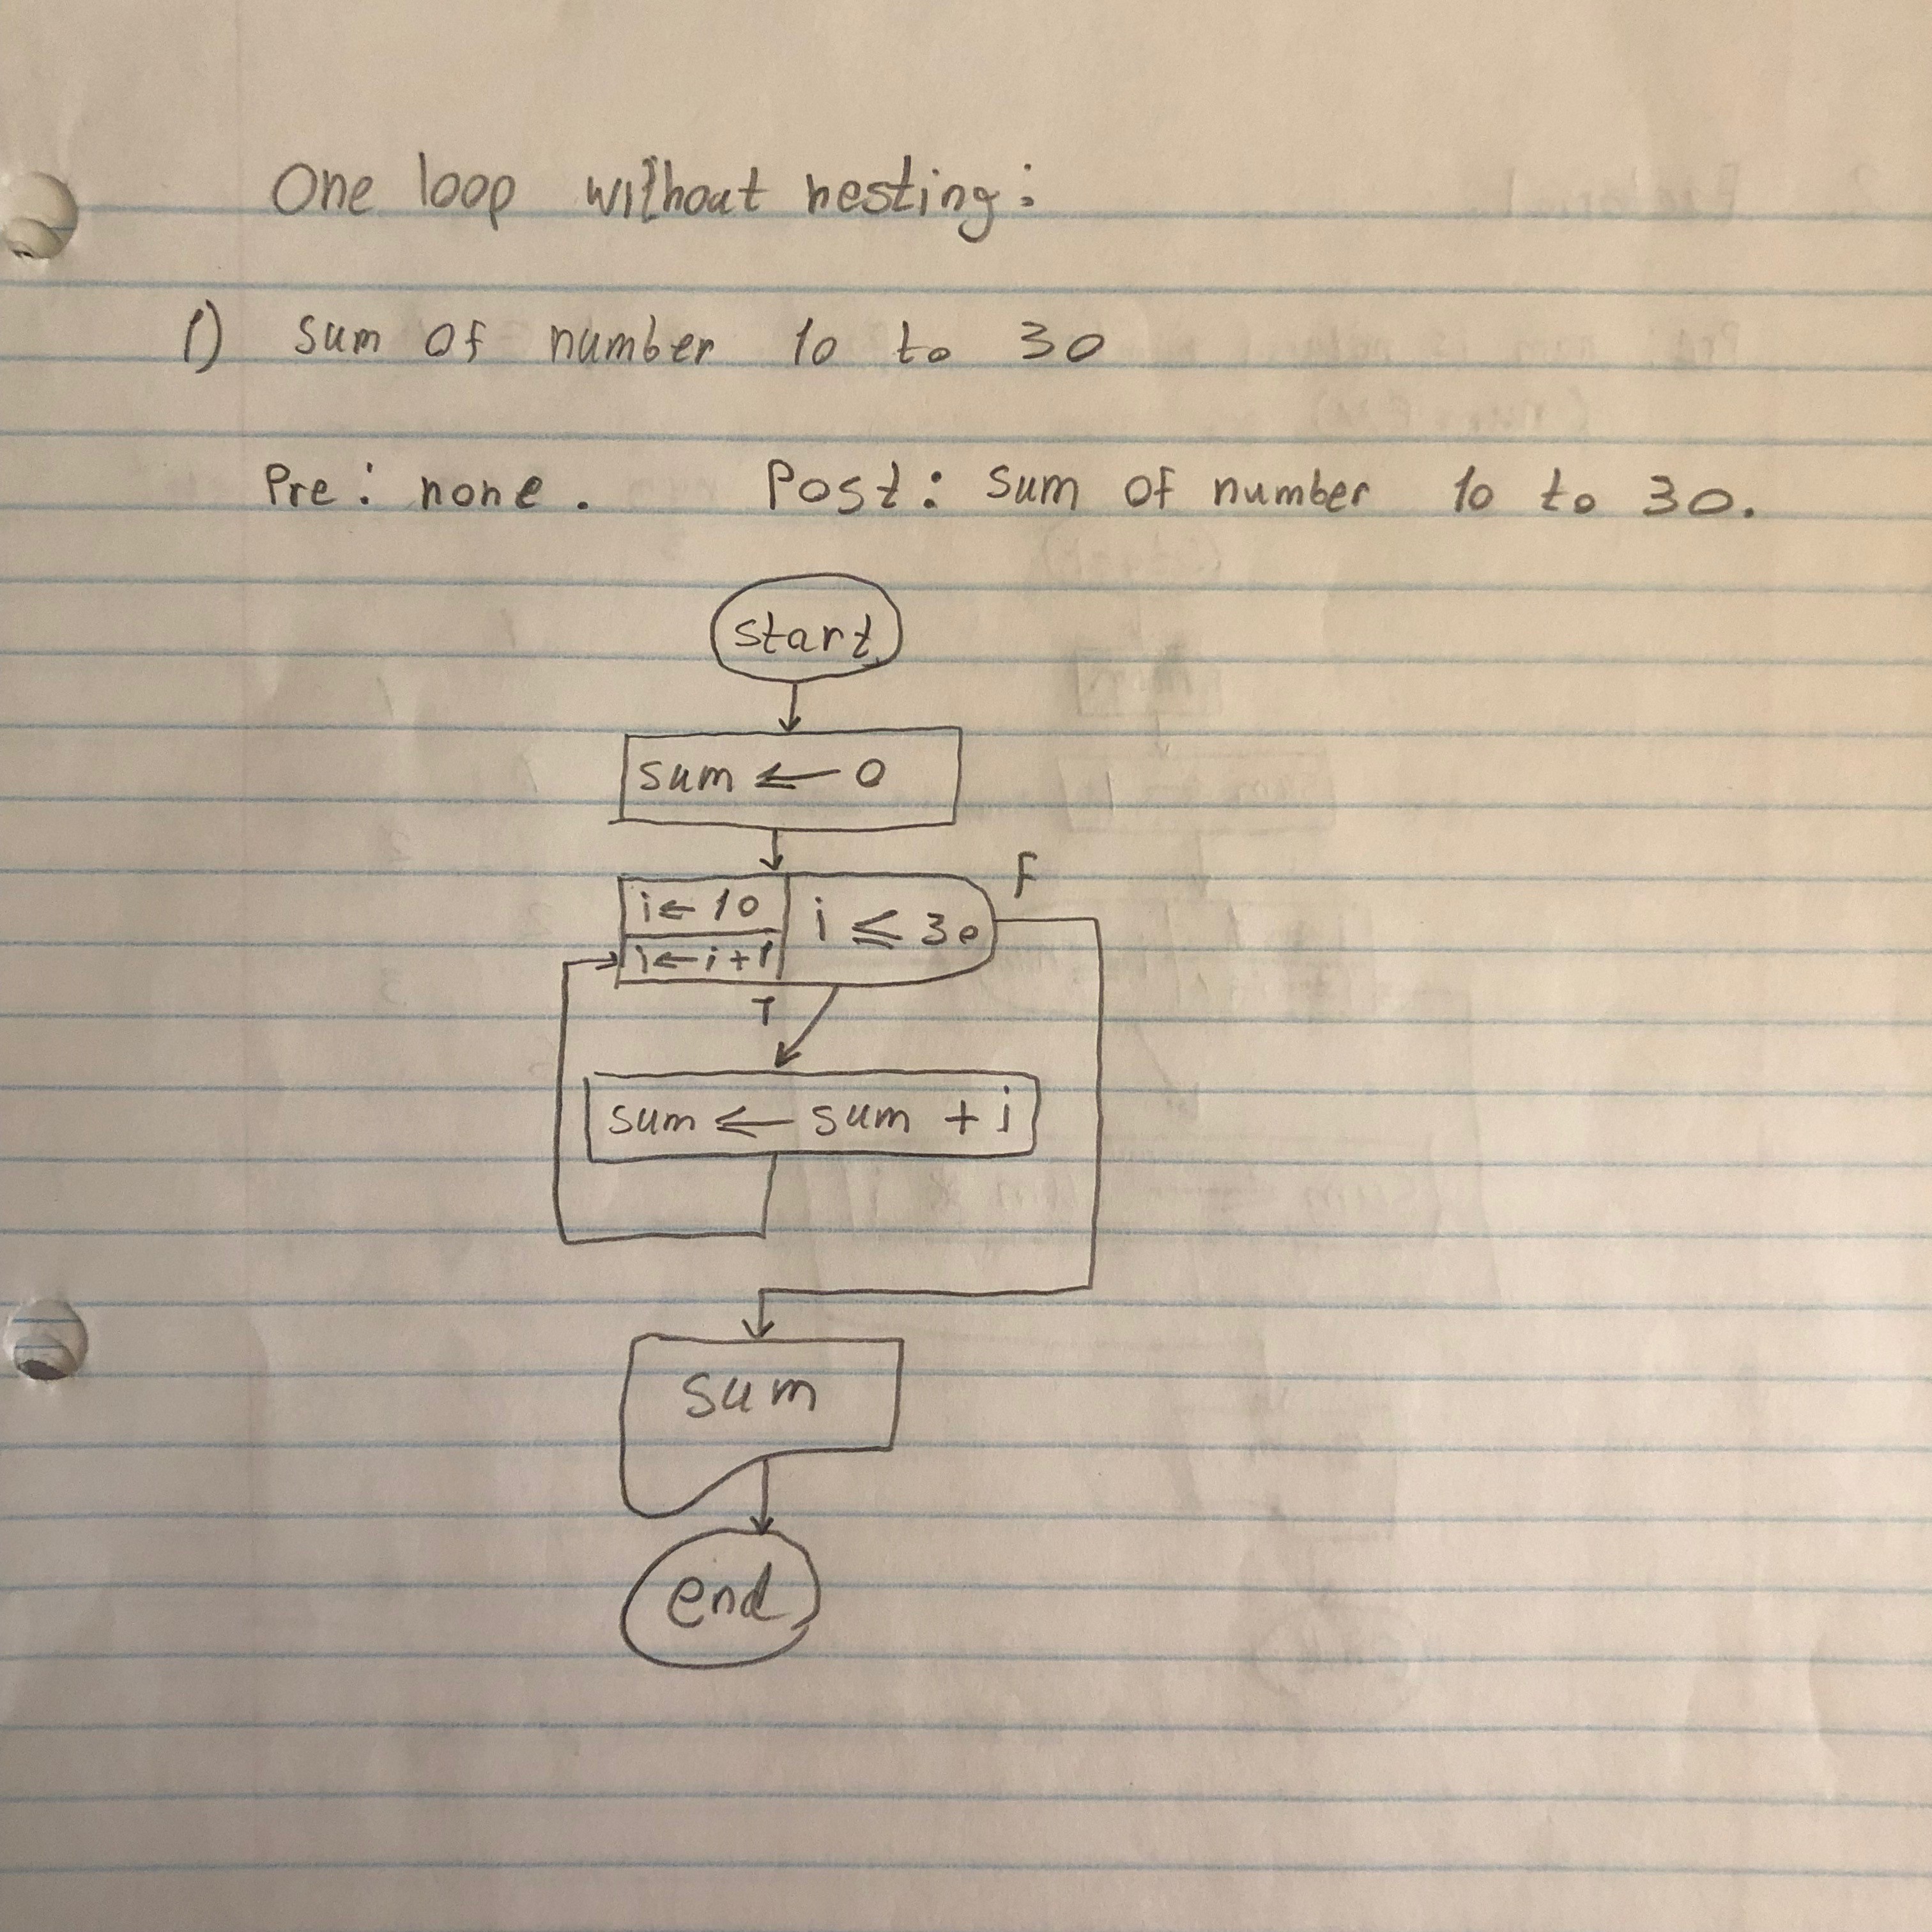 One loop without nesting:
1) sum of number 10 to 30
Pre: none. Post: sum of number 10 to 30.
start
sum ← 0
i ← 10
i ≤ 30
F
i ← i+1
T
sum ← sum + i
sum
end